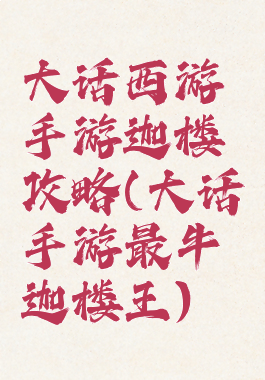 大话西游
手游迦楼
攻略(大话
手游最牛
迦楼王)